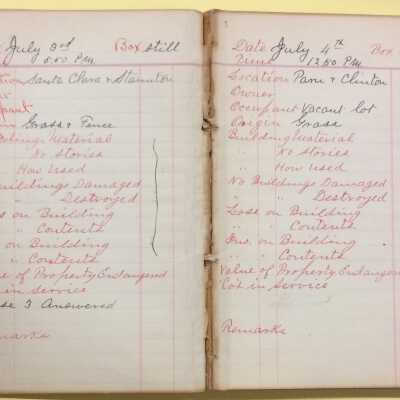 July 3rd Box still
5:50 P.M.
Santa Clara & Staunton
Grass & Fence
Building Material
No Stories
How Used
Buildings Damaged
" Destroyed
on Building
" Contents
on Building
" Contents
of Property Endangered
in Service
3 Answered
Remarks
Date July 4th Box
Time 12:50 P.M.
Location Paru & Clinton
Owner
Occupant Vacant lot
Origin Grass
Building Material
" No Stories
" How Used
No Buildings Damaged
" " Destroyed
Loss on Building
" " Contents
Ins. on Building
" " Contents
Value of Property Endangered
Co's in Service
Remarks